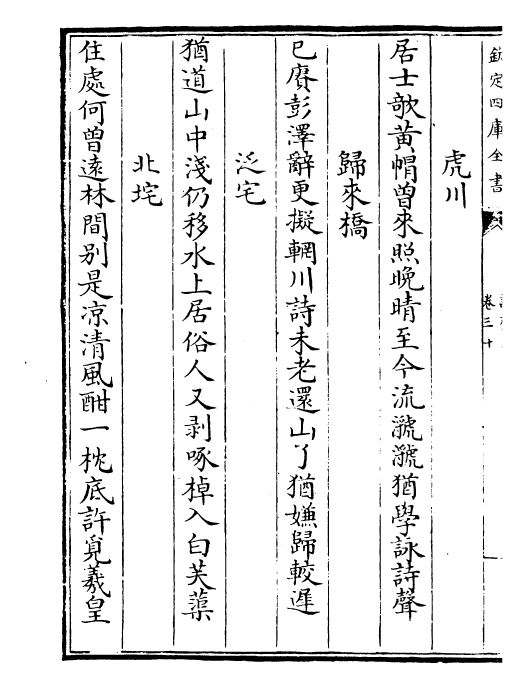 欽定四庫全書
卷三十
虎川
居士欹黃帽曾來照晚晴至今流㶁㶁猶學詠詩聲
歸來橋
已賡彭澤辭更擬輞川詩未老還山了猶嫌歸較遲
泛宅
猶道山中淺仍移水上居俗人又剥啄棹入白芙蕖
北垞
住處何曾遠林間别是凉清風酣一枕底許覓羲皇